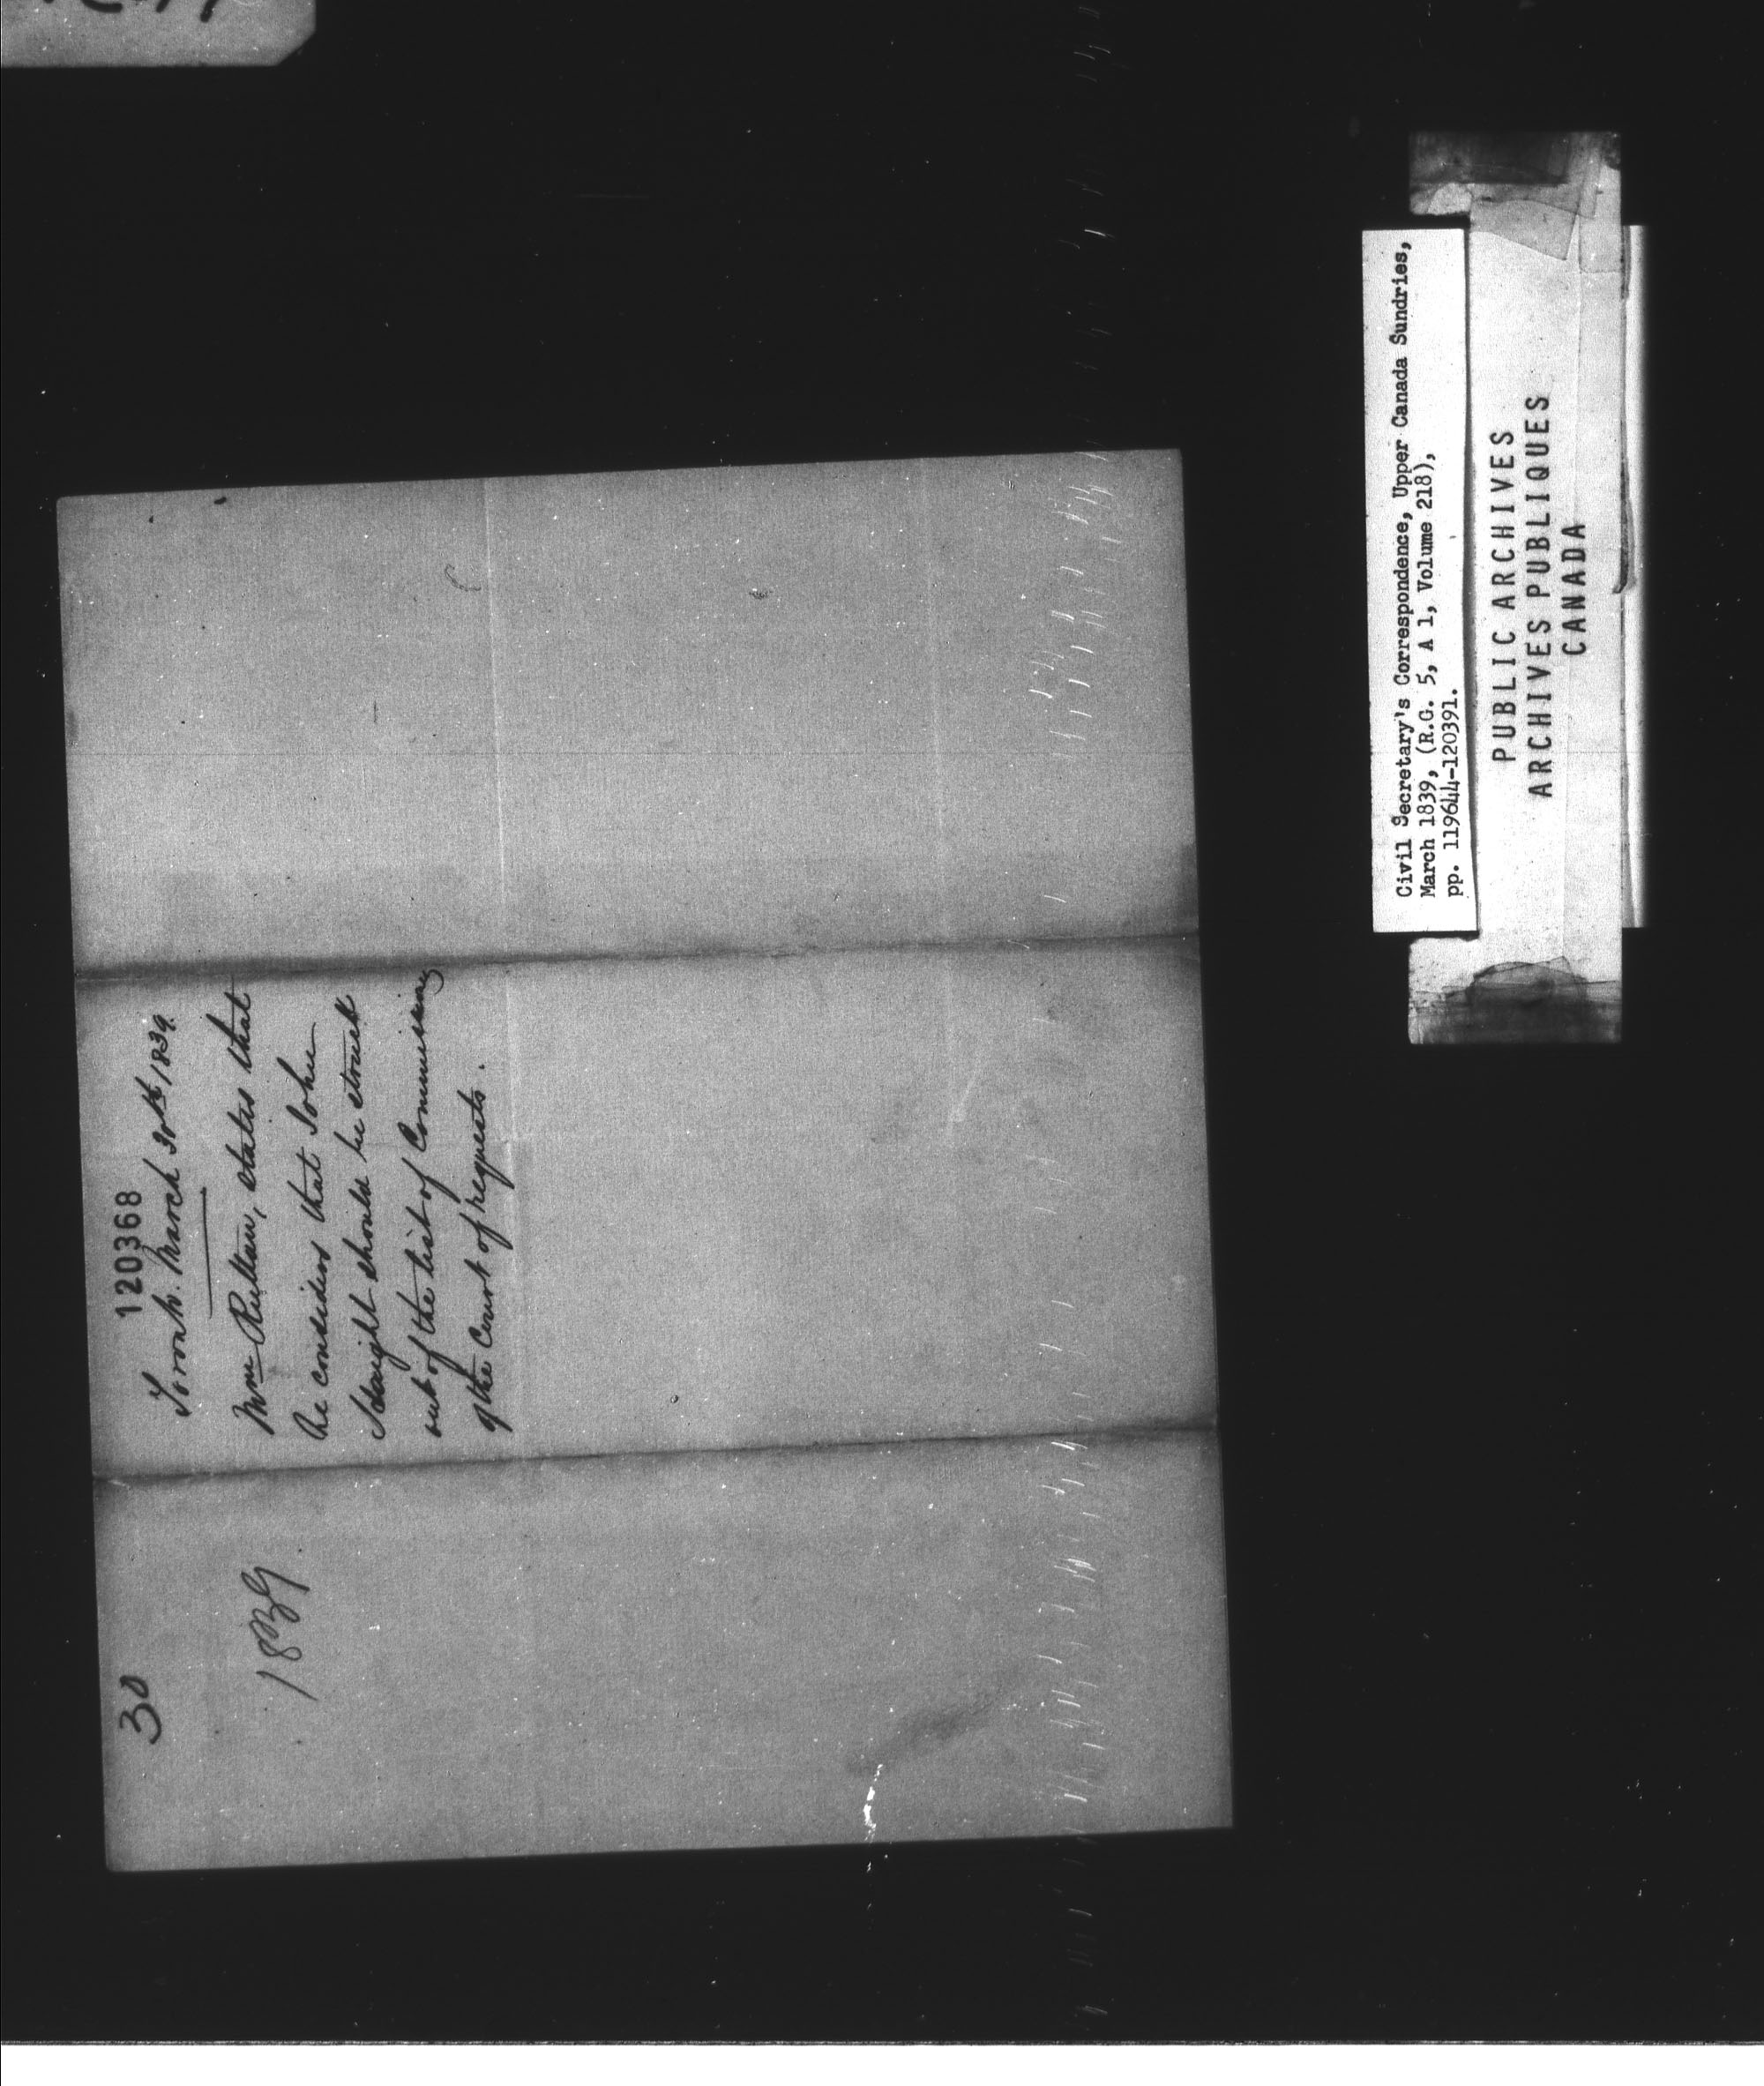 120368
Toronto. March 30th 1839.
Wm Ruttan, states that
he considers that John
Haight should be struck
out of the list of Commissioners
of the Court of requests.
30
1839
Civil Secretary's Correspondence, Upper Canada Sundries,
March 1839, (R.G. 5, A 1, Volume 218),
pp. 119644-120391.
PUBLIC ARCHIVES
ARCHIVES PUBLIQUES
CANADA